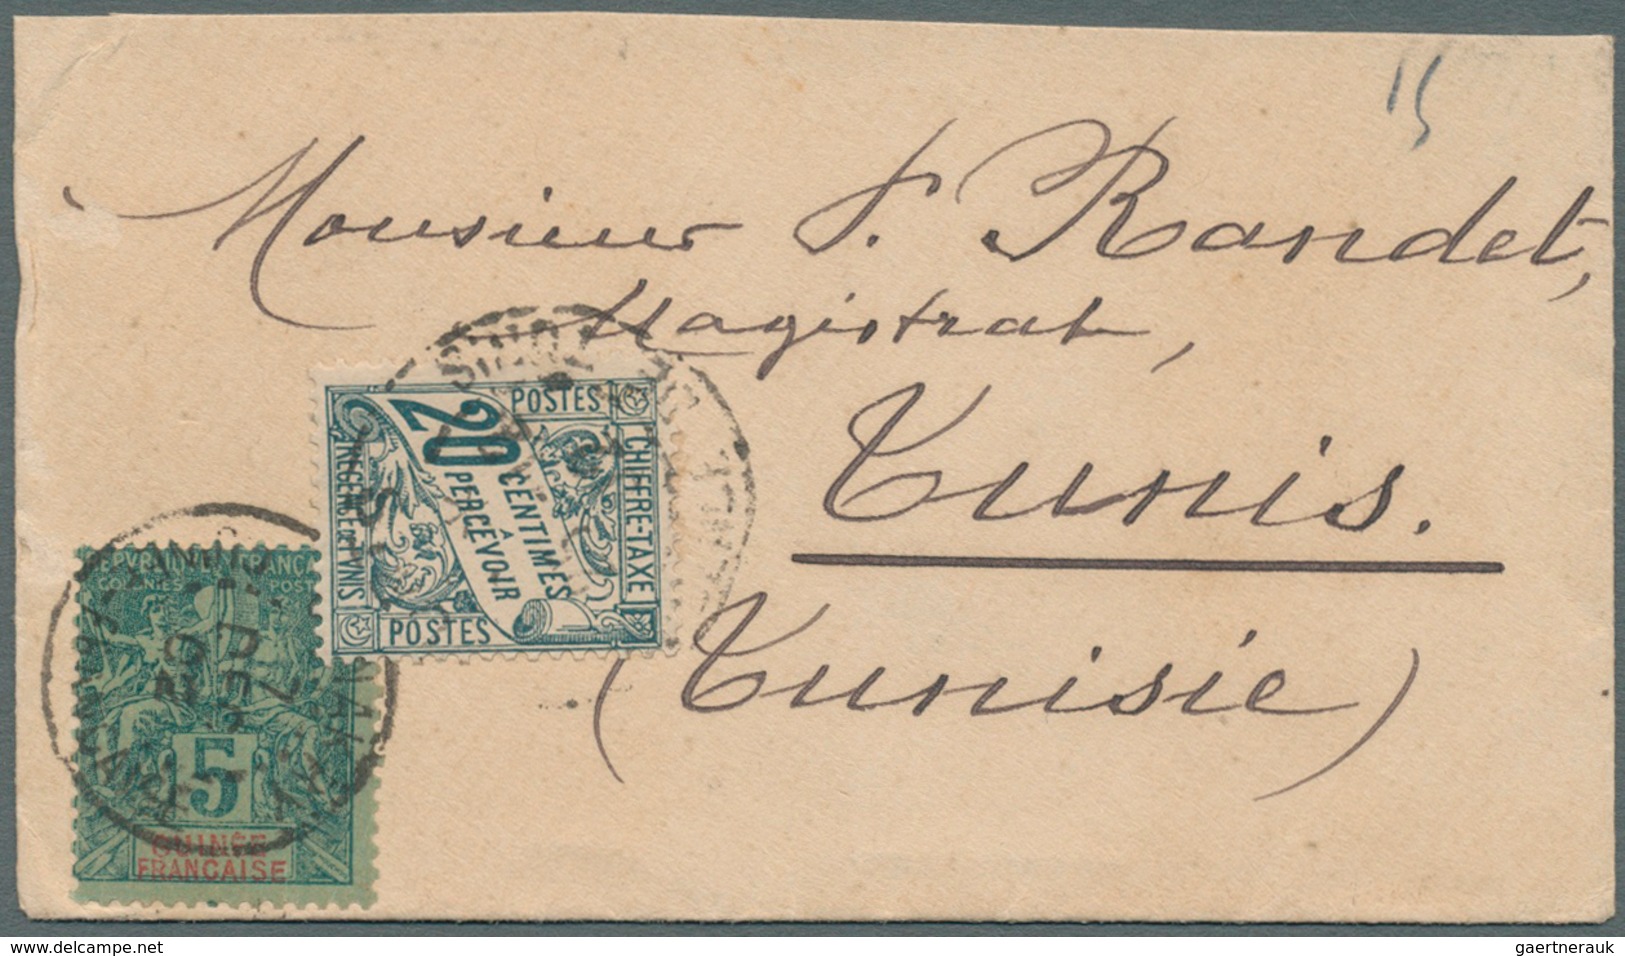 15
Monsieur F. Randet,
Magistrat,
Tunis.
(Tunisie)
POSTES
CHIFFRE-TAXE
20
CENTIMES
A
PERCEVOIR
REGENCE DE TUNIS
POSTES
TUNIS
COLONIES POSTES
5
GUINÉE
FRANÇAISE
www.delcampe.net
gaertnerauk